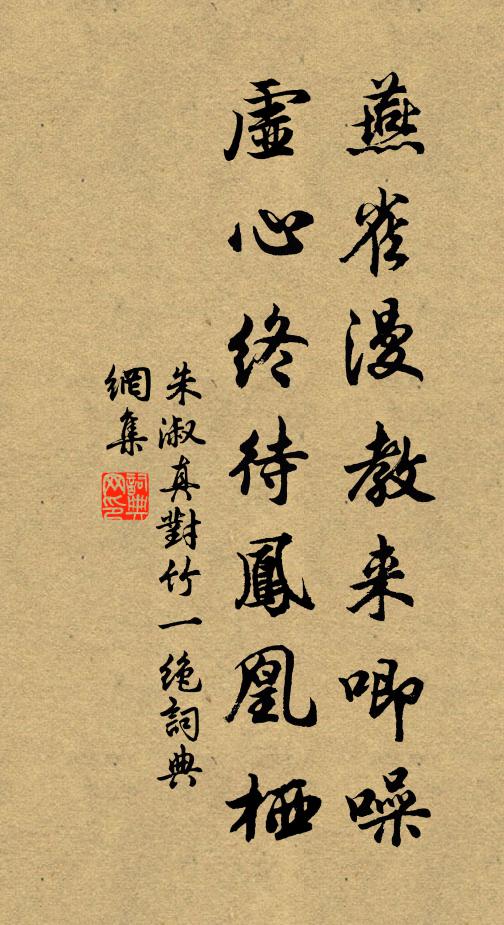 燕雀漫教来唧噪
虛心終待鳳凰栖
朱淑真對竹一絶詞典
網集
詞典
网印